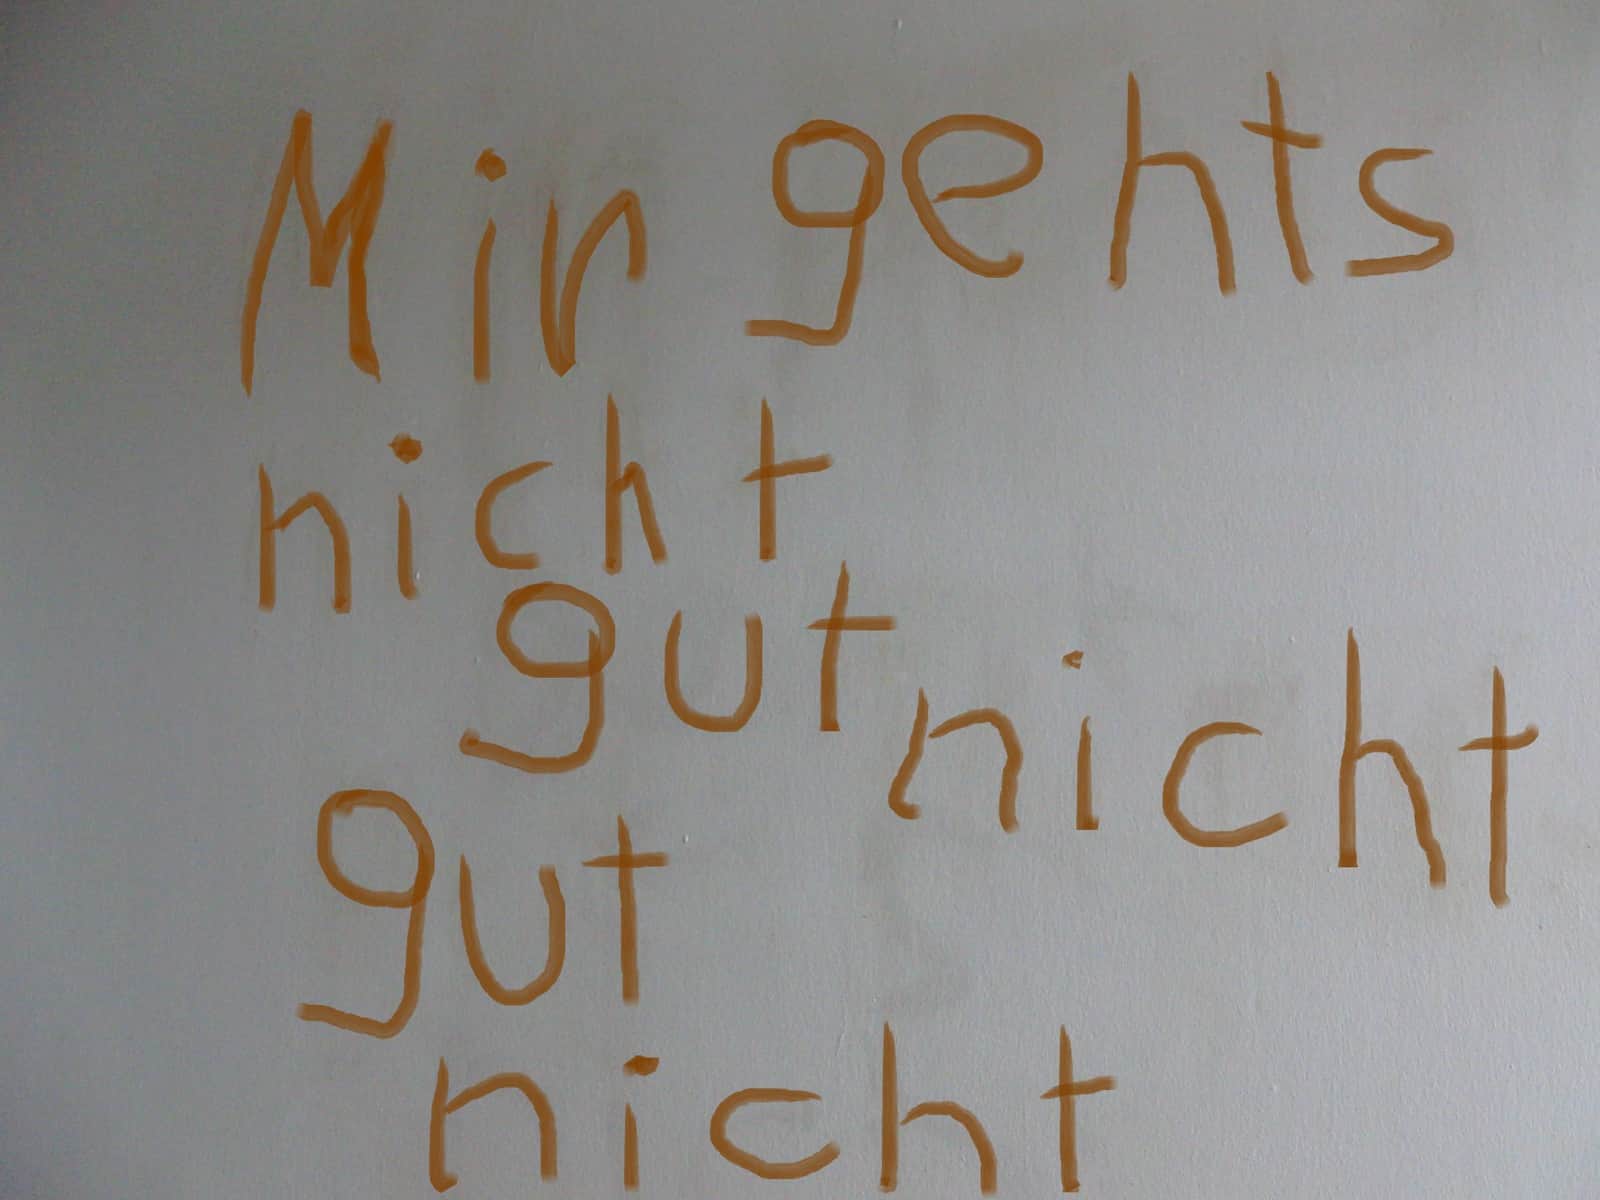 Mir gehts
nicht
gut nicht
gut
nicht